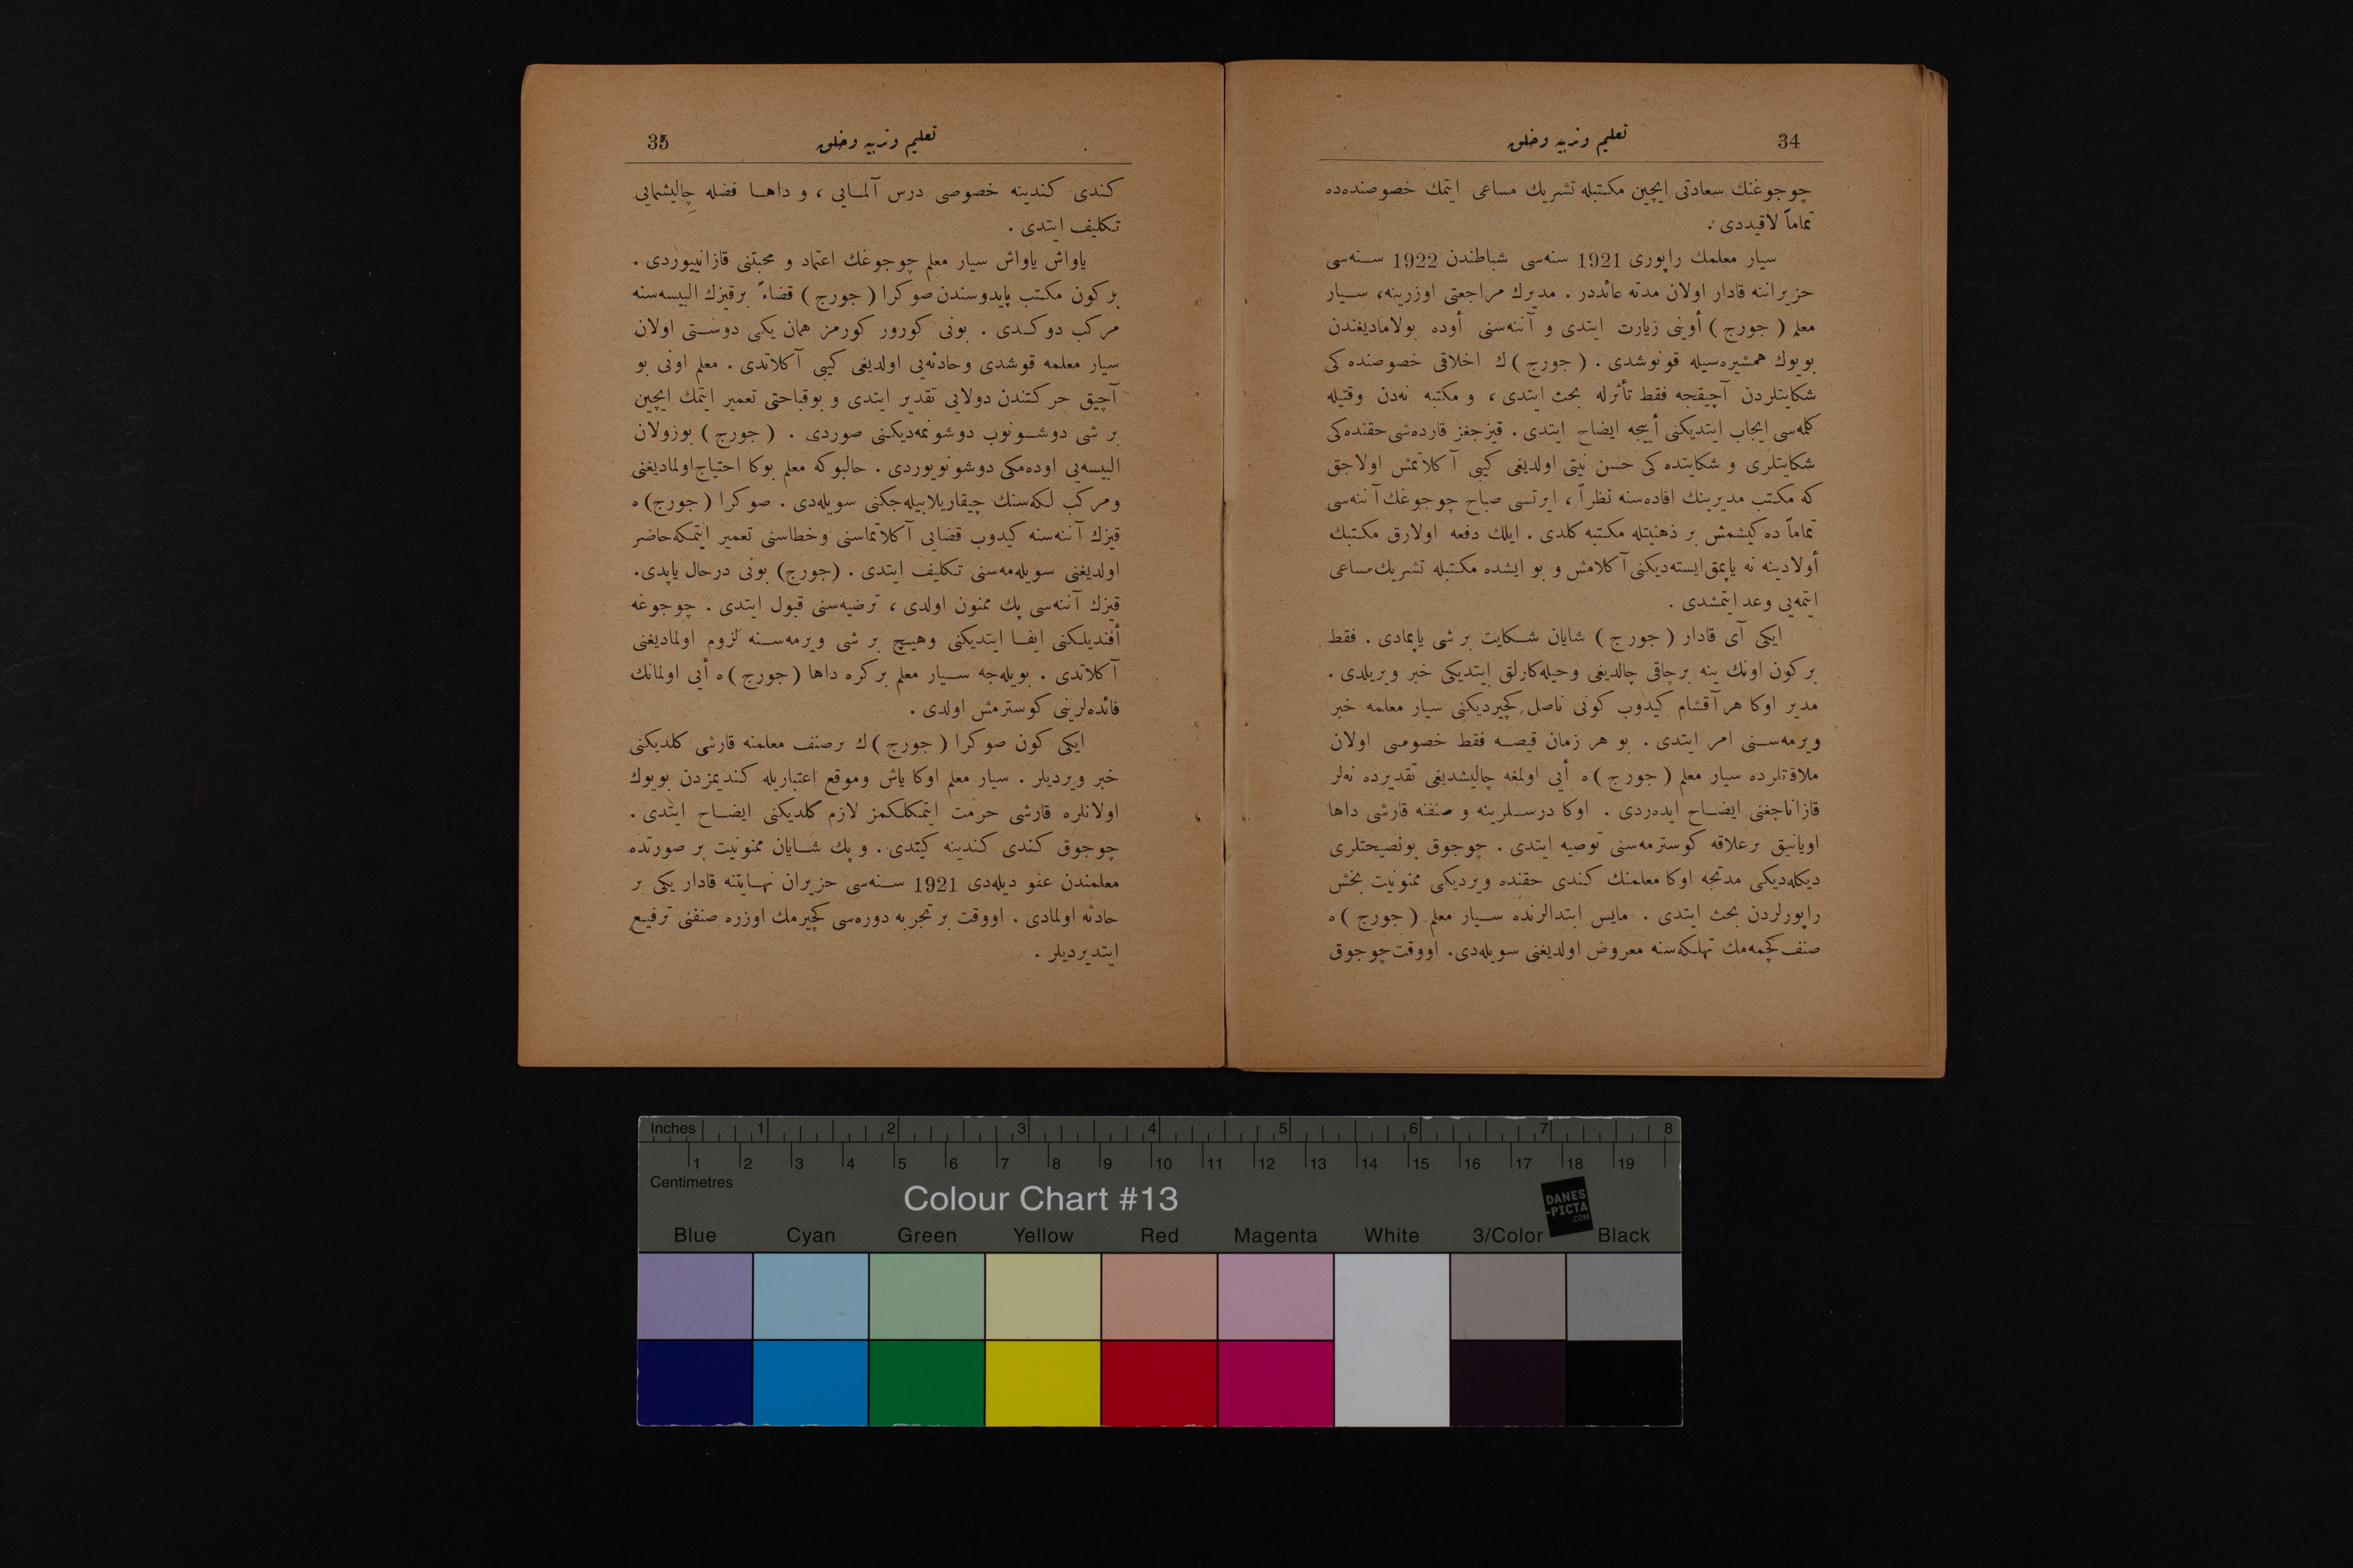 34
تعليم وتربيه وخلق
چوجوغنك سعادتى ايچين مكتبله تشريك مساعى ايتمك خصوصنده‌ده
تماماً لاقيددى .
سيار معلمك راپورى 1921 سنه‌سى شباطندن 1922 سنه‌سى
حزيراننه قادار اولان مدته عائددر . مديرك مراجعتى اوزرينه، سيار
معلم ( جورج ) أوينى زيارت ايتدى و آننه‌سنى أوده بولاماديغندن
بويوك همشيره‌سيله قونوشدى . ( جورج )ك اخلاقى خصوصنده‌كى
شكايتلردن آچيقجه فقط تأثرله بحث ايتدى ، و مكتبه نه‌دن وقتيله
كلمه‌سى ايجاب ايتديكنى أييجه ايضاح ايتدى . قيزجغز قارده‌شى حقنده‌كى
شكايتلرى و شكايتده‌كى حسن نيتى اولديغى كيبى آكلاتمش اولاجق
كه مكتب مديرينك افاده‌سنه نظراً ، ايرتسى صباح چوجوغك آننه‌سى
تماماً ده‌كيشمش بر ذهنيتله مكتبه كلدى . ايلك دفعه اولارق مكتبك
أولادينه نه ياپمق ايسته‌ديكنى آكلامش و بو ايشده مكتبله تشريك مساعى
ايتمه‌يى وعد ايتمشدى .
ايكى آى قادار ( جورج ) شايان شكايت بر شى ياپمادى . فقط
بر كون اونك ينه بر چاقى چالديغى وحيله‌كارلق ايتديكى خبر ويريلدى .
مدير اوكا هر آقشام كيدوب كونى ناصل كچيرديكنى سيار معلمه خبر
ويرمه‌سنى امر ايتدى . بو هر زمان قيصه فقط خصوصى اولان
ملاقاتلرده سيار معلم ( جورج )ه أيى اولمغه چاليشديغى تقديرده نه‌لر
قازاناجغنى ايضاح ايده‌ردى . اوكا درسلرينه و صنفنه قارشى داها
اويانيق بر علاقه كوسترمه‌سنى توصيه ايتدى . چوجوق بو نصيحتلرى
ديكله‌ديكى مدتجه اوكا معلمنك كندى حقنده ويرديكى ممنونيت بخش
راپورلردن بحث ايتدى . مايس ابتدالرنده سيار معلم ( جورج )ه
صنف كچمه‌مك تهلكه‌سنه معروض اولديغنى سويله‌دى. اووقت چوجوق
تعليم وتربيه وخلق
35
كندى كندينه خصوصى درس آلمايى ، و داها فضله چاليشمايى
تكليف ايتدى .
ياواش ياواش سيار معلم چوجوغك اعتماد و محبتنى قازانييوردى .
بر كون مكتب پايدوسندن صوكرا ( جورج ) قضاءً بر قيزك البيسه‌سنه
مركب دوكدى . بونى كورور كورمز همان يكى دوستى اولان
سيار معلمه قوشدى وحادثه‌يى اولديغى كيبى آكلاتدى . معلم اونى بو
آچيق حركتندن دولايى تقدير ايتدى و بوقباحتى تعمير ايتمك ايچين
بر شى دوشونوب دوشونمه‌ديكنى صوردى . ( جورج ) بوزولان
البيسه‌يى اوده‌مكى دوشونويوردى . حالبوكه معلم بوكا احتياج اولماديغنى
ومركب لكه‌سنك چيقاريلابيله‌جكنى سويله‌دى . صوكرا ( جورج)ه
قيزك آننه‌سنه كيدوب قضايى آكلاتماسنى وخطاسنى تعمير ايتمكه حاضر
اولديغنى سويله‌مه‌سنى تكليف ايتدى . (جورج) بونى درحال ياپدى.
قيزك آننه‌سى پك ممنون اولدى ، ترضيه‌سنى قبول ايتدى . چوجوغه
أفنديلكنى ايفا ايتديكنى وهيچ بر شى ويرمه‌سنه لزوم اولماديغنى
آكلاتدى . بويله‌جه سيار معلم بر كره داها ( جورج )ه أيى اولمانك
فائده‌لرينى كوسترمش اولدى .
ايكى كون صوكرا ( جورج )ك بر صنف معلمنه قارشى كلديكنى
خبر ويرديلر . سيار معلم اوكا ياش وموقع اعتباريله كنديمزدن بويوك
اولانلره قارشى حرمت ايتمكلكمز لازم كلديكنى ايضاح ايتدى .
چوجوق كندى كندينه كيتدى . و پك شايان ممنونيت بر صورتده
معلمندن عفو ديله‌دى 1921 سنه‌سى حزيران نهايتنه قادار يكى بر
حادثه اولمادى . اووقت بر تجربه دوره‌سى كچيرمك اوزره صنفنى ترفيع
ايتديرديلر .
Inches 1 2 3 4 5 6 7 8
1 2 3 4 5 6 7 8 9 10 11 12 13 14 15 16 17 18 19
Centimetres
Colour Chart #13
DANES
-PICTA
.COM
Blue Cyan Green Yellow Red Magenta White 3/Color Black